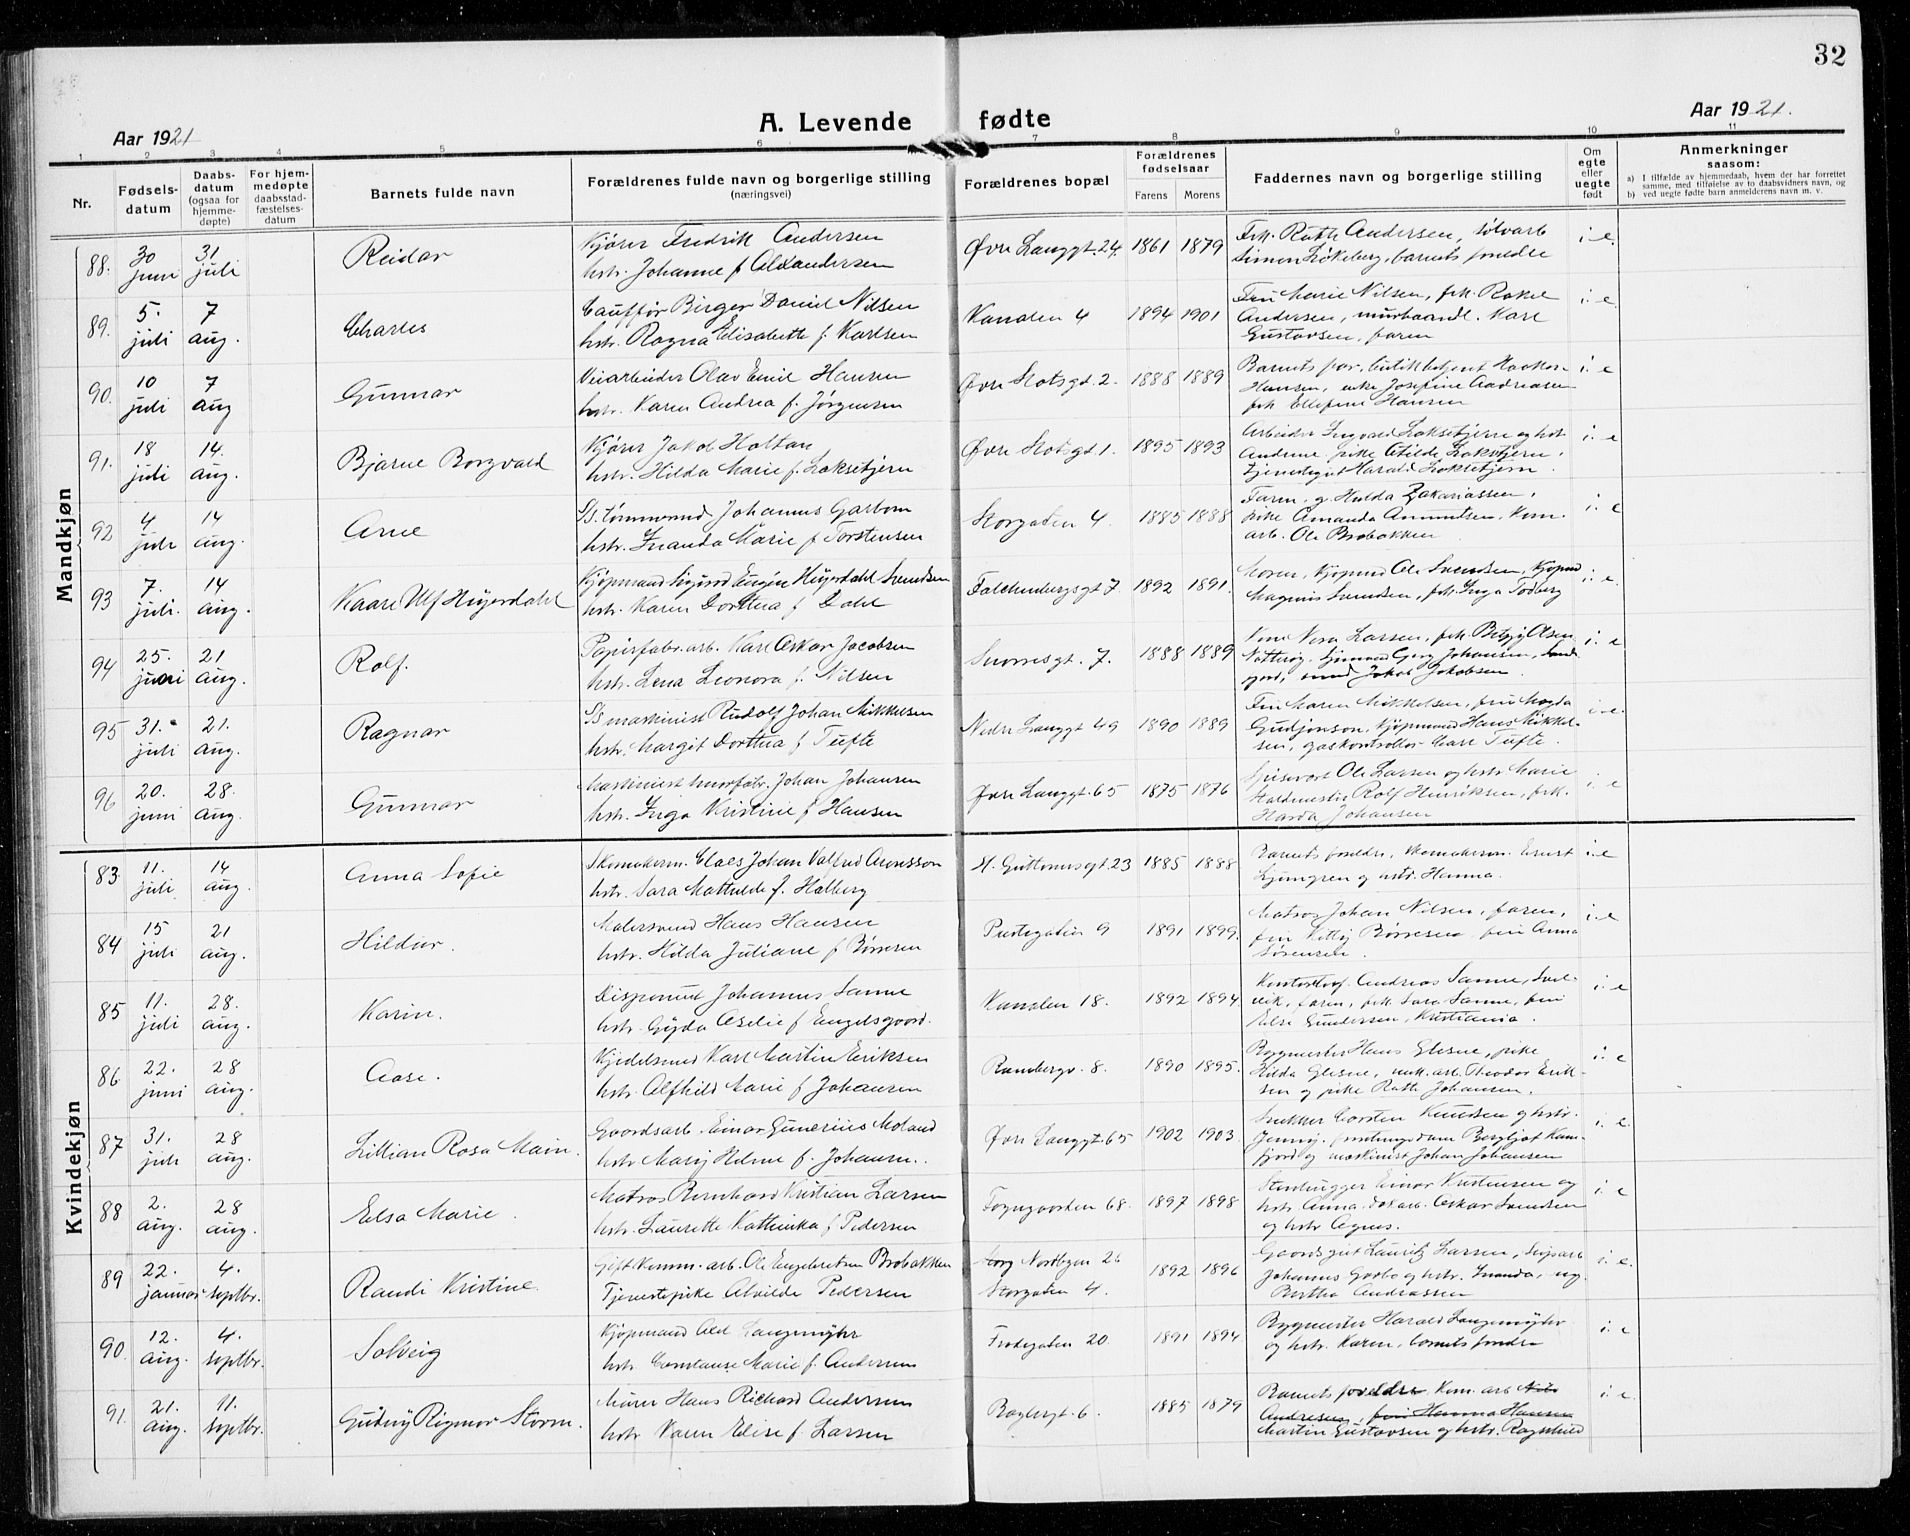 32
A. Levende fødte
Aar 1921
Aar 1921.
1 2 3 4 5 6 7 8 9 10 11
Nr.
Fødsels-datum
Daabs-datum (ogsaa for hjemme-døpte)
For hjem-medøpte daabsstad-fæstelses-datum
Barnets fulde navn
Forældrenes fulde navn og borgerlige stilling (næringsvei)
Forældrenes bopæl
Forældrenes fødselsaar
Farens Morens
Faddernes navn og borgerlige stilling
Om egte eller uegte født
Anmerkninger saasom:
a) I tilfælde av hjemmedaab, hvem der har forrettet samme, med tilføielse av to daabsvidners navn, og
b) ved uegte fødte barn anmelderens navn m. v.
Mandkjøn
88. 30 juni 31 juli Reidar
Kjører Fredrik Andersen
hstr. Johanne f. Alexandersen
Øvre Langgt. 24. 1861 1879
Frk. Ruth Andersen, sølvarb
Simon Løkeberg, barnets foreldre
i. e.
89. 5. juli 7 aug. Charles
Cauffør Birger Daniel Nilsen
hstr. Ragna Elisabeth f. Karlsen
Kanalen 4 1894 1901
Fru Marie Nilsen, frk. Rakel
Andersen, murhaandl. Karl
Gustavsen, faren
i. e
90. 10 juli 7 aug Gunnar
Veiarbeider Olav Emil Hansen
hstr. Karen Andrea f. Jørgensen
Øvre Slotsgt. 2. 1888 1889
Barnets far, butikbetjent Haakon
Hansen, enke Josefine Andreasen
frk Ellefine Hansen
i. e
91. 18 juli 14. aug. Bjarne Borgvald
Kjører Jakob Holtan
hstr. Hilda Marie f. Loksetjern
Øvre Slotsgt. 1. 1895 1893
Arbeider Ingvald Loksetjern og hstr
Andrine, pike Otilde Loksetjern,
tjenestegut Harald Loksetjern.
i. e
92 4 juli 14 aug. Arne
Johannes Garbom
hstr. Inanda Marie f Torstensen
Storgaten 4. 1885 1888
Faren, g. Hulda Zakariassen,
pike Amanda Amundsen, Kom.
arb. Ole Brobakken
i. e
93 7. juli. 14 aug. Kaare Ulf Heyerdahl
Kjøpmand Sigurd Eugén Heyerdahl Svendsen
hstr. Karen Dorthea f Dahl
Falchenbergsgt 7. 1892 1891.
Moren, Kjøpmd Ole Svendsen, Kjøpmd
Magnus Svendsen, frk. Inga Fodberg
i. e.
94 25. juni 21 aug. Rolf.
Papirfabr. arb. Karl Oskar Jacobsen
hstr. Lena Leonora f. Nilsen
Snorresgt. 7. 1888 1889
Kone Nora Larsen, frk. Betzy Olsen
Nøtterøy, sjømand Georg Johansen,
Jakob Jakobsen
i. e
95 31. juli 21. aug. Ragnar
maskinist Rudolf Johan Mikkelsen
hstr. Margit Dorthea f Tufte
Nedre Langgt 49 1890 1889
Fru Maren Mikkelsen, fru Magda
Gudjonson, Kjøpmand Hans Mikkel-
sen, gaskontrollør Carl Tufte.
i. e.
96 20. juni 28. aug. Gunnar
Maskinist Johan Johansen
hstr. Inga Kristine f Hansen
Øvre Langgt. 65 1875 1876
Ole Larsen og hstr Marie
Rolf Henriksen, frk.
Harda Johansen
i. e
Kvindekjøn
83 11. juli 14 aug. Anna Sofie
Skomakerm. Claes Johan Valfrid Aronsson
hstr. Sara Mathilde f. Halberg
H. Guttormsgt. 23 1885 1888
Barnets foreldre, skomakersv. Ernst
Ljungren og hstr. Hanna.
i. e
84 15 juli 21 aug. Hildur.
Malersvend Hans Hansen
hstr. Hilda Juliane f Børresen
Prestegaten 9 1891 1899.
Matros Johan Nilsen, faren,
fru Kitty Børresen, fru Anna
Sørensen.
i. e
85 11. juli 28. aug. Karin.
Disponent Johannes Sanne
hstr. Gyda Aselie f Engelsgaard.
Kanalen 18. 1892 1894
Kontorchef Andreas Sanne, Svel-
vik, faren, frk. Sara Sanne, fru
Else Gundersen, Kristiania.
i. e
86 22. juni 28 aug. Aase.
Kjedelsmed Karl Martin Eriksen
hstr. Alfhild Marie f Johansen
Rambergv. 8. 1890 1895.
Bygmester Hans Glesne, pike
Hilda Glesne, mek. arb. Theodor Erik-
sen og pike Ruth Johansen.
i. e
87 31. juli 28 aug. Lillian Rosa Main.
Gaardsarb. Einar Gunerius Moland
hstr Mary Helene f. Johansen.
Øvre Langgt. 65 1902 1903.
Snekker Carsten Knudsen og hstr.
Jenny, Bergljot Kam-
fjord og maskinist Johan Johansen
i. e.
88 2. aug. 28 aug. Elsa Marie.
Matros Bernhard Kristian Larsen
hstr. Laurette Kathinka f Pedersen
Togngaarden 68. 1897 1898
Stenhugger Einar Kristensen og
hstr. Anna, Oskar Svendsen
og hstr Agnes.
i. e
89 22. januar 4. septbr. Randi Kristine.
Gift Komm. arb. Ole Engebretsen Brobakken
Tjenestepike Alvilde Pedersen
Nordbyen 26
Storgaten 4. 1892 1896
Gaardsgut Lauritz Larsen,
Johannes Garbo og hstr. Inanda,
Bertha Andreassen
i. e.
90. 12. aug. 4. septbr. Solveig
Kjøpmand Alf Langemyhr
hstr. Constanse Marie f. Andersen
Frodegaten 20. 1891 1894
Bygmester Harald Langemyhr
og hstr. Karen, barnets foreldre
i. e
91. 21. aug. 11. septbr. Gudny Rigmor Storm.
Murer Hans Richard Andersen
hstr Karen Elise f Larsen
Baglergt. 6. 1885 1879
Barnets foreldre, Kom. arb Nils
Andresen, fru Hanna Hansen
Martin Gustavsen og hstr. Ragnhild
i. e.